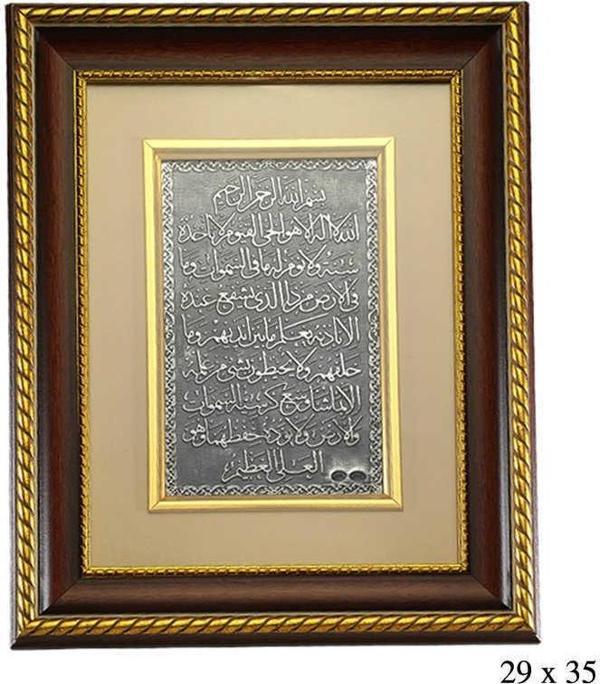 بسم الله الرحمن الرحيم
الله لا اله الا هو الحي القيوم لا تاخذه
سنة ولا نوم له ما في السموات وما
في الارض من ذا الذي يشفع عنده
الا باذنه يعلم ما بين ايديهم وما
خلفهم ولا يحيطون بشئ من علمه
الا بما شاء وسع كرسيه السموات
والارض ولا يوده حفظهما وهو
العلي العظيم
29 x 35